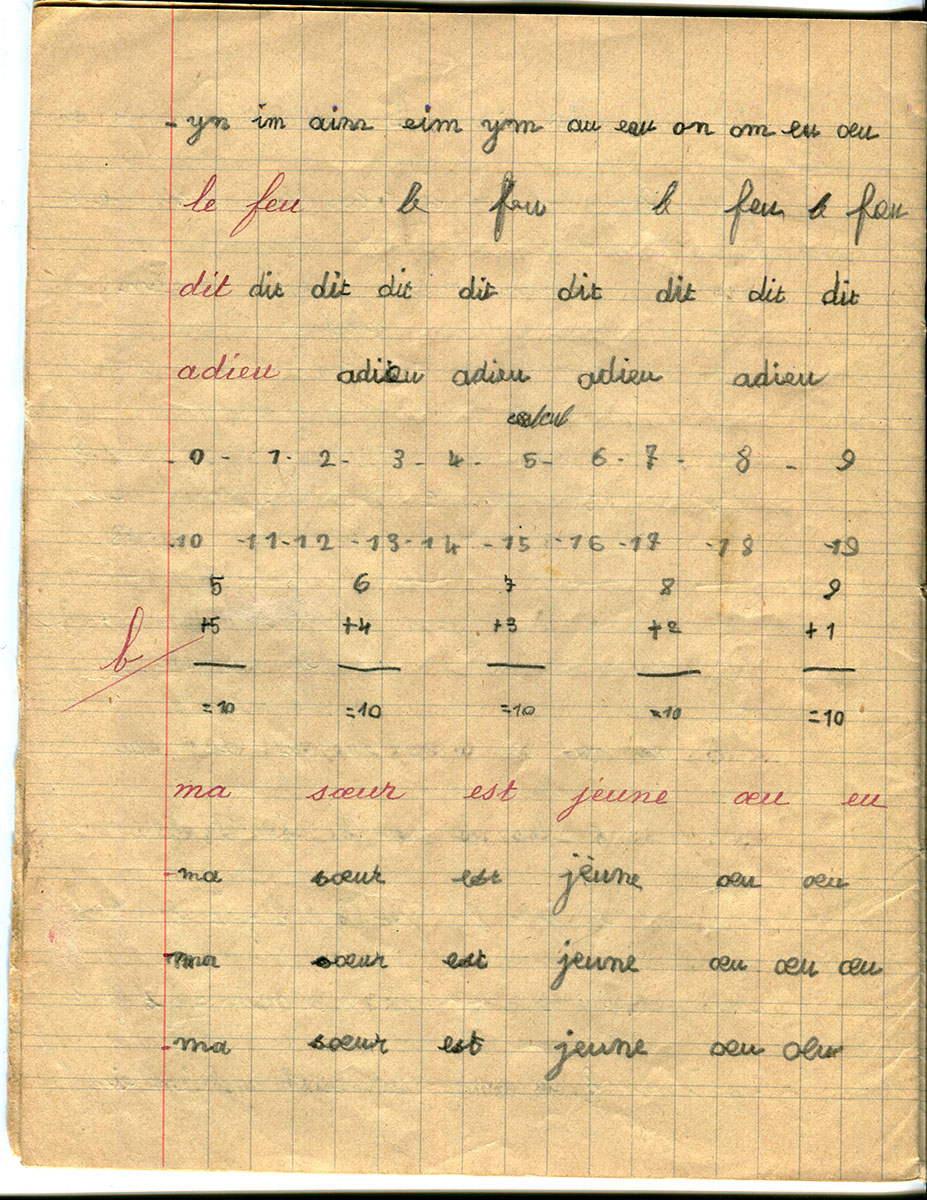 - yn im aim eim ym au eau on om eu œu
le feu le feu le feu le feu
dit dit dit dit dit dit dit dit dit
adieu adieu adieu adieu adieu
calcul
- 0 - 1 - 2 - 3 - 4 - 5 - 6 - 7 - 8 - 9
-10 -11-12 -13-14 -15 -16 -17 -18 -19
5 6 7 8 9
b +5 +4 +3 +2 +1
=10 =10 =10 =10 =10
ma sœur est jeune œu eu
-ma sœur est jeune œu œu
-ma sœur est jeune œu œu œu
-ma sœur est jeune œu œu